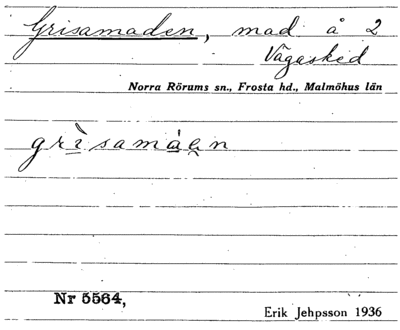 Grisamaden, mad å 2
Vägasked
Norra Rörums sn., Frosta hd., Malmöhus län
grìsamáen
Nr 5564,
Erik Jehpsson 1936